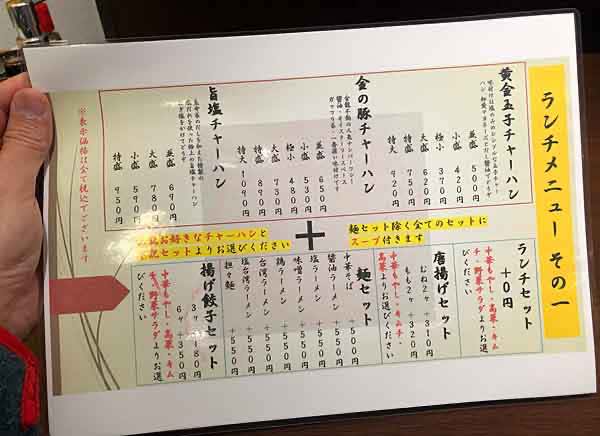 ランチメニュー その一
黄金玉子チャーハン
並盛 500円
小盛 420円
大盛 620円
極小 370円
特盛 750円
特大 920円
金の豚チャーハン
並盛 650円
小盛 530円
極小 480円
大盛 730円
特盛 890円
特大 1090円
旨塩チャーハン
並盛 690円
大盛 780円
小盛 590円
特盛 950円
※表示価格は全て税込でございます
麺セット除く全てのセットに
スープ付きます
+
お好きなチャーハンと
セットよりお選びください
ランチセット
+0円
中華もやし・高菜・キム
チ・野菜サラダよりお選
びください
唐揚げセット
むね2ヶ +310円
もも2ヶ +320円
中華もやし・高菜・キムチ
・野菜サラダよりお選びください
麺セット
中華そば +500円
醤油ラーメン +550円
塩ラーメン +550円
味噌ラーメン +550円
鶏ラーメン +550円
台湾ラーメン +550円
塩台湾ラーメン +550円
担々麺 +550円
揚げ餃子セット
3ヶ +180円
6ヶ +350円
中華もやし・高菜・キム
チ・野菜サラダよりお選
びください